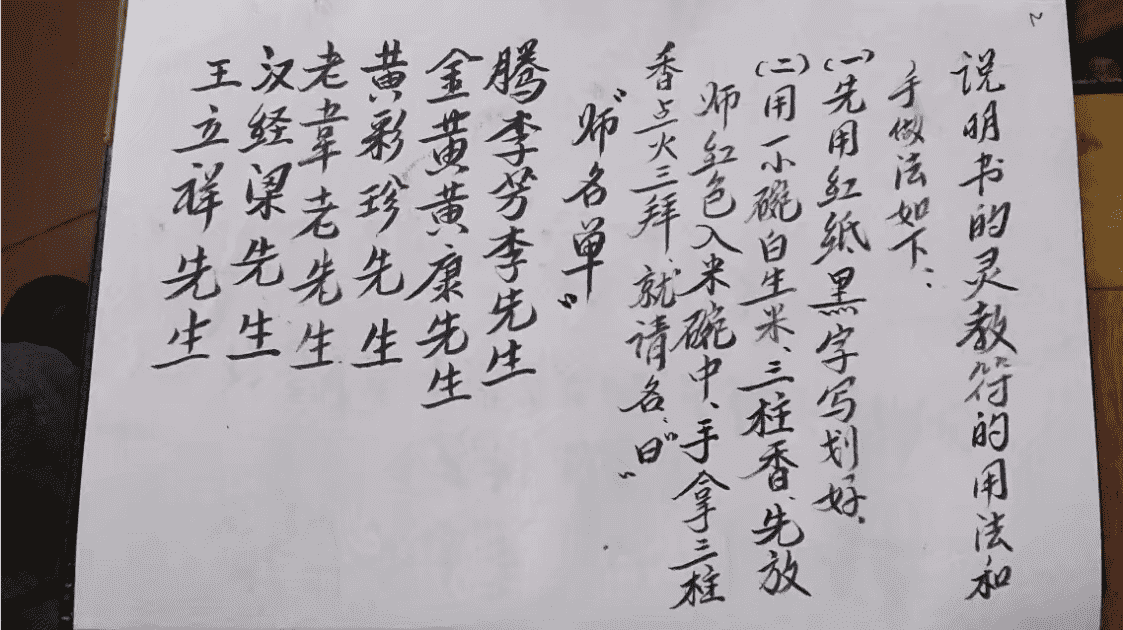 2
说明书的灵教符的用法和
手做法如下：
(一)先用红纸黑字写划好、
(二)用一小碗白生米、三柱香、先放
师红色入米碗中、手拿三柱
香点火三拜、就请名、"曰"
"师名单"
腾李芳李先生
金黄黄康先生
黄彩珍先生
老韋老先生
汉经梁先生
王立祥先生